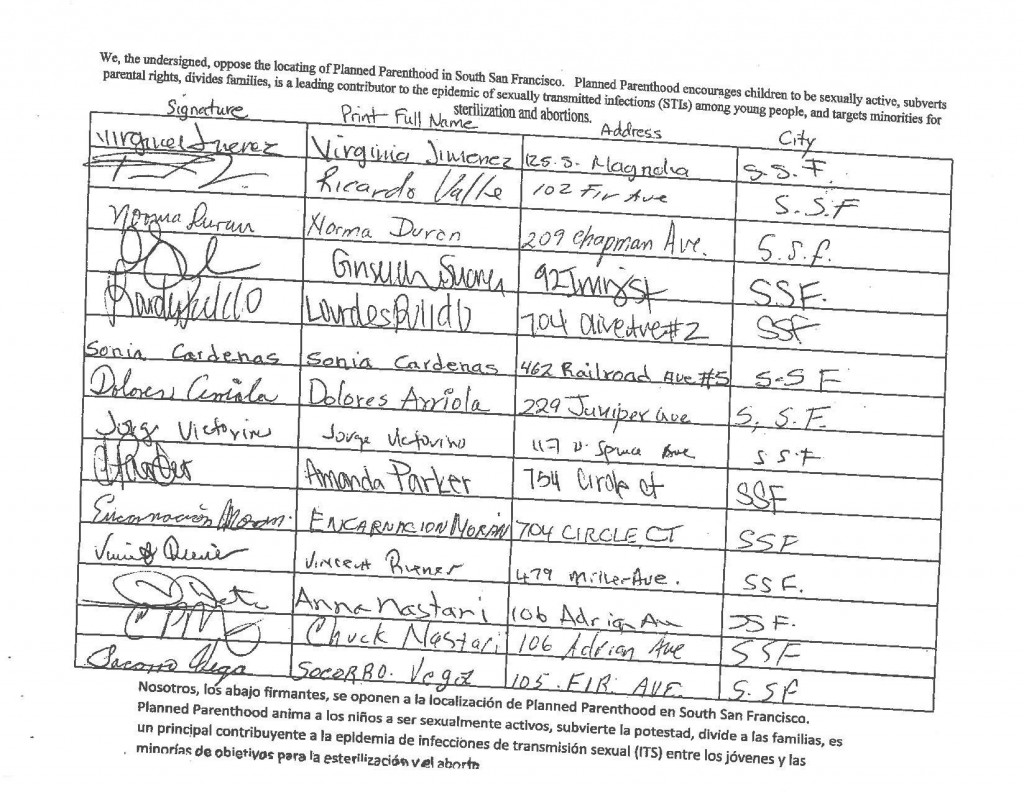 We, the undersigned, oppose the locating of Planned Parenthood in South San Francisco. Planned Parenthood encourages children to be sexually active, subverts
parental rights, divides families, is a leading contributor to the epidemic of sexually transmitted infections (STIs) among young people, and targets minorities for
sterilization and abortions.
Signature Print Full Name Address City
Virginia Jimenez 125. S. Magnolia S.S.F.
Ricardo Valle 102 Fir Ave S.S.F
Norma Duran Norma Duron 209 Chapman Ave. S.S.f.
92 SSF.
Lourdes Pulido 704 Olive Ave #2 SSF
Sonia Cardenas Sonia Cardenas 462 Railroad Ave #5 S-S F
Dolores Arriola Dolores Arriola 229 Juniper Ave S. S.F.
Jorge Victorino Jorge Victorino 117 Spruce Ave S S F
Amanda Parker 754 Circle Ct SSF
Encarnación ENCARNACION MORÁN 704 CIRCLE CT SSF
Vincent 479 Miller Ave. SSF.
Anna Nastari 106 Adrian Av SSF.
Chuck Nastari 106 Adrian Ave SSF
Socorro Vega SOCORRO. Vega 105. FIR. AVE. S.SF
Nosotros, los abajo firmantes, se oponen a la localización de Planned Parenthood en South San Francisco.
Planned Parenthood anima a los niños a ser sexualmente activos, subvierte la potestad, divide a las familias, es
un principal contribuyente a la epidemia de infecciones de transmisión sexual (ITS) entre los jóvenes y las
minorías de objetivos para la esterilización y el aborto